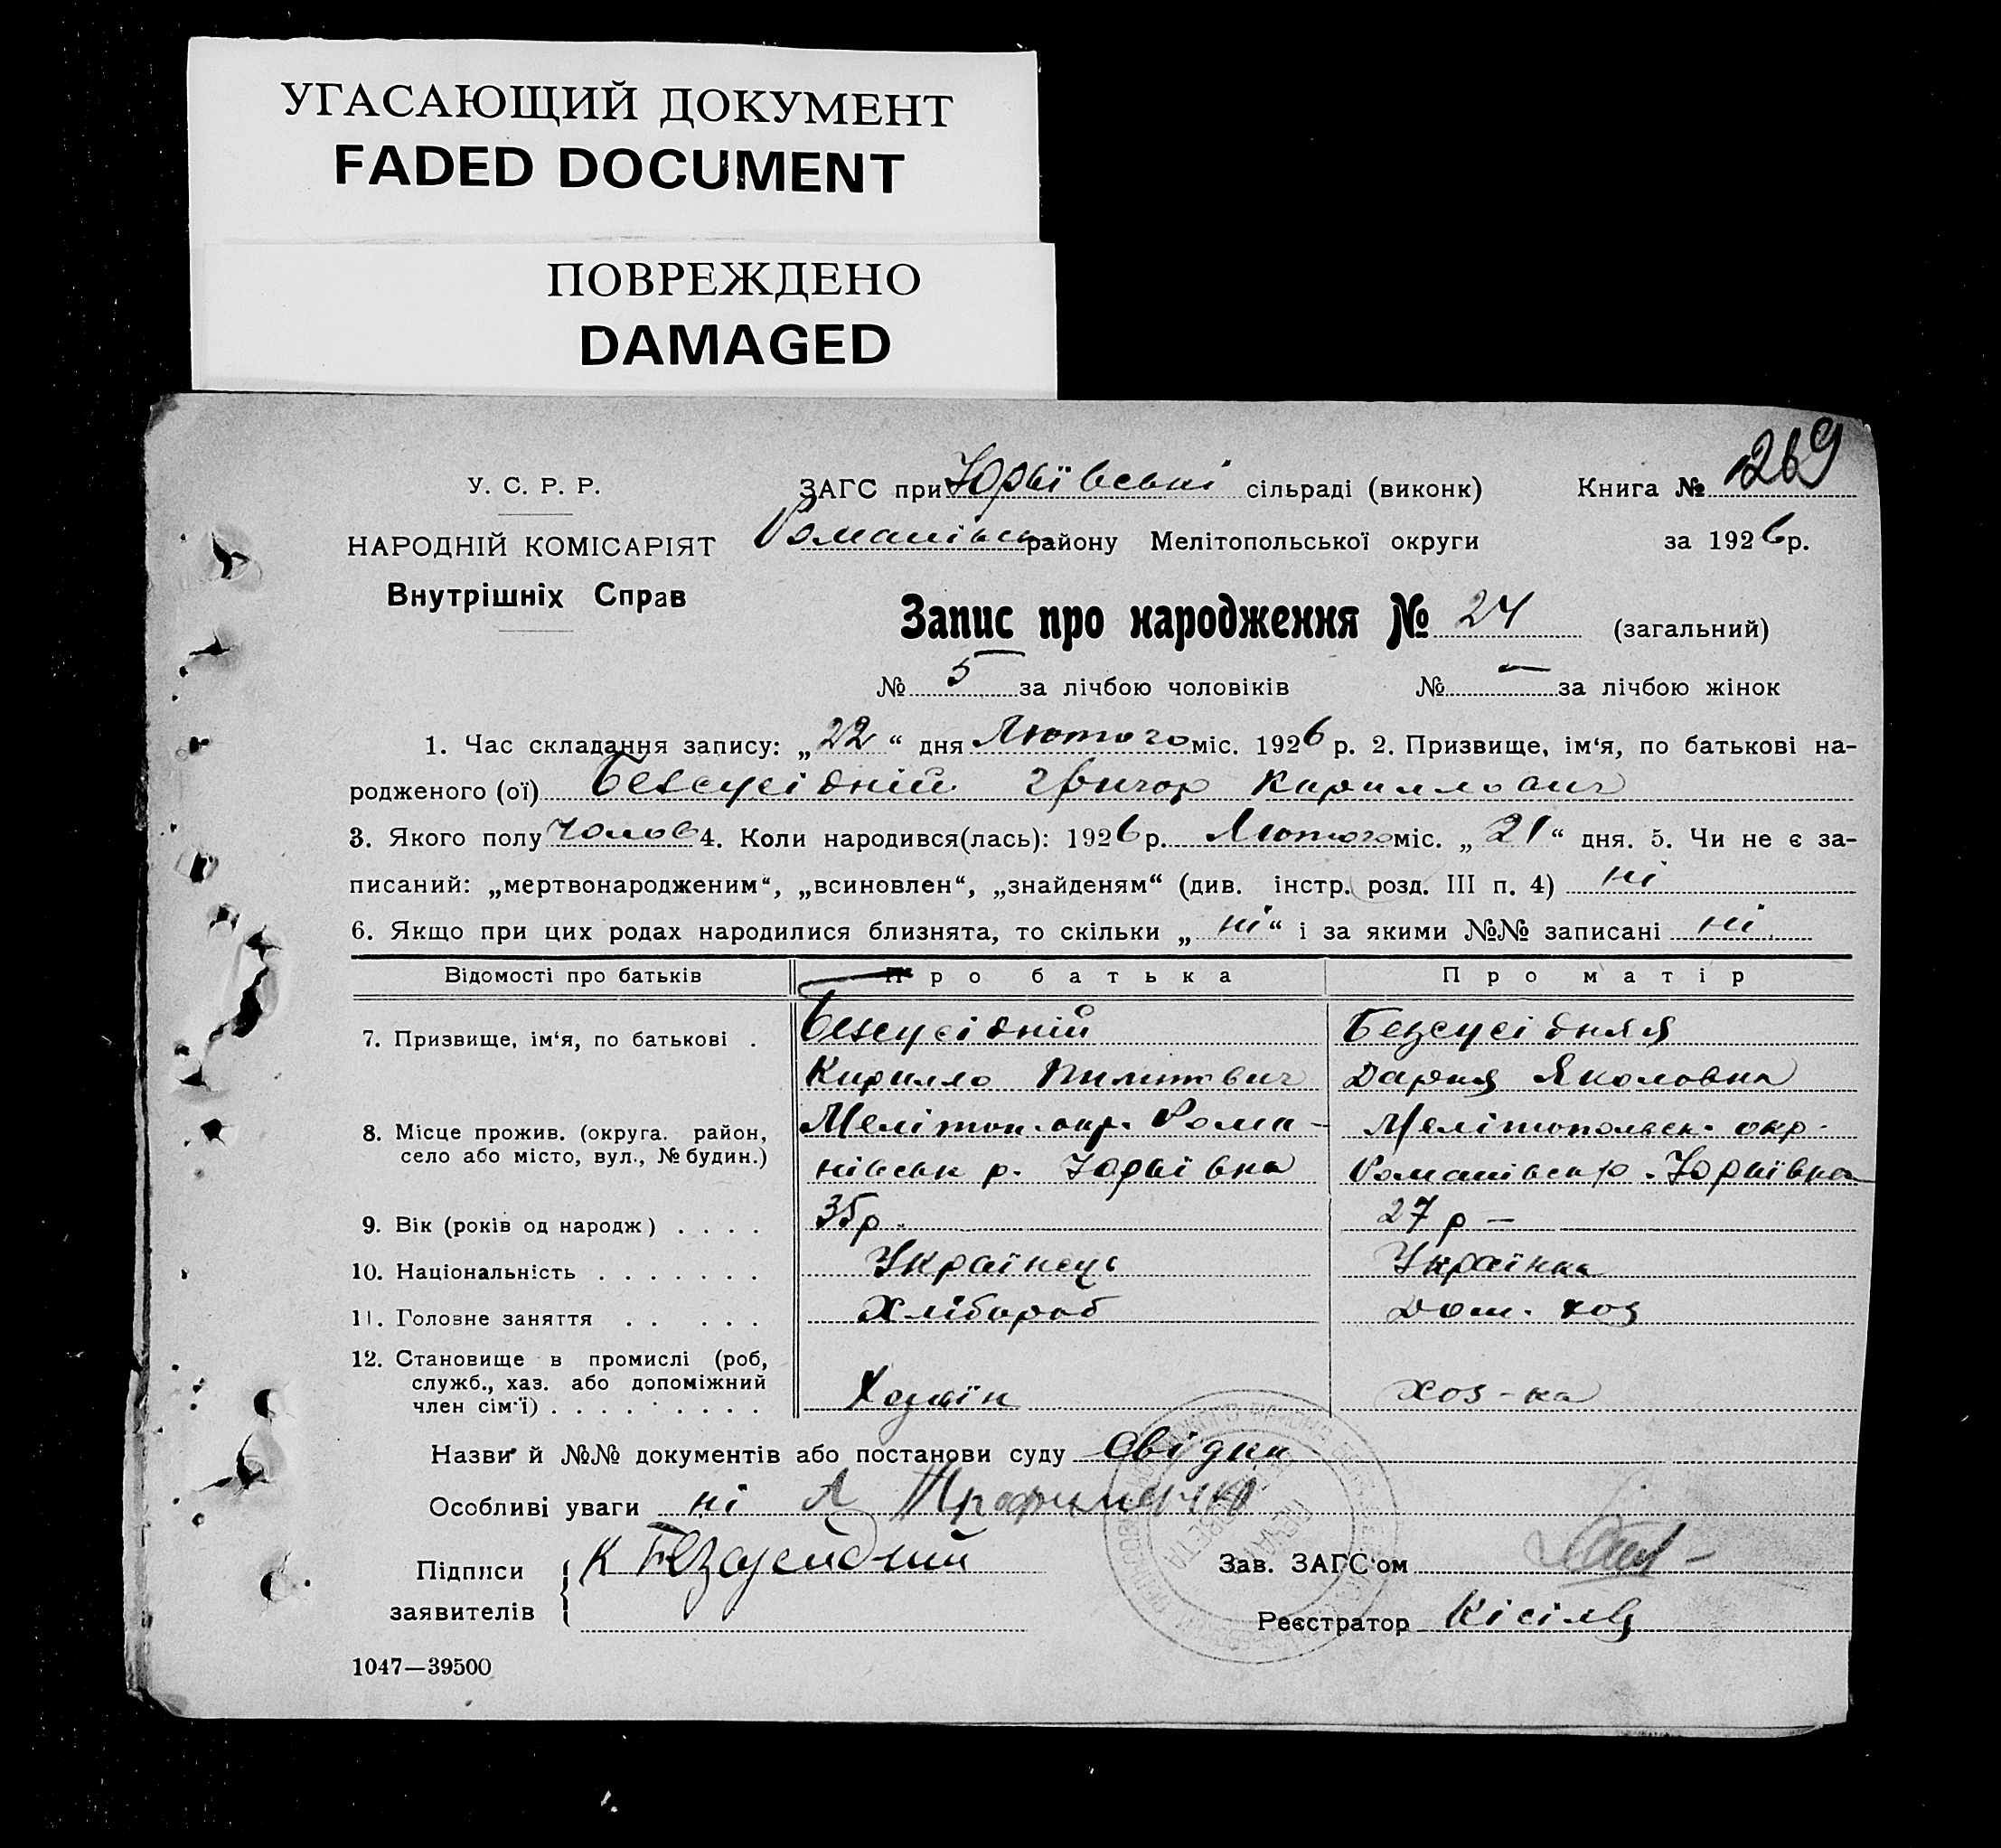 УГАСАЮЩИЙ ДОКУМЕНТ
FADED DOCUMENT
ПОВРЕЖДЕНО
DAMAGED
У. С. Р. Р.
НАРОДНІЙ КОМІСАРІЯТ
Внутрішніх Справ
ЗАГС при Юрьївські сільраді (виконк) Книга № 269
Романівськ району Мелітопольської округи за 1926 р.
Запис про народження № 24 (загальний)
№ 5 за лічбою чоловіків № — за лічбою жінок
1. Час складання запису: „22“ дня Лютого міс. 1926 р. 2. Призвище, ім‘я, по батькові на-
родженого (ої) Безсусідній Григор Кириллович
3. Якого полу Чолов 4. Коли народився(лась): 1926 р. Лютого міс. „21“ дня. 5. Чи не є за-
писаний: „мертвонародженим“, „всиновлен“, „знайденям“ (див. інстр. розд. III п. 4) ні
6. Якщо при цих родах народилися близнята, то скільки „ні“ і за якими №№ записані ні.
Відомості про батьків Про батька Про матір
7. Призвище, ім‘я, по батькові . Безсусідній Безсусідняя
Кирилло Дарья Яковловна
8. Місце прожив. (округа. район, Меліпоп. окр. Рома- Мелітопольськ. окр.
село або місто, вул., № будин.) нівськ р. Юрьївка Романівськ р. Юрьївка
9. Вік (років од народж) . . . . 35 р. 27 р —
10. Національність . . . . . . . Українець Українка
11. Головне заняття . . . . . Хлібороб Дом. хоз
12. Становище в промислі (роб,
служб., хаз. або допоміжний
член сім‘ї) . . . . . . . . . Хазяїн хоз-ка
Назви й №№ документів або постанови суду Свідки
Особливі уваги ні А
Підписи К Безсусидний Зав. ЗАГС‘ом
заявителів Реєстратор Кісіль
1047—39500